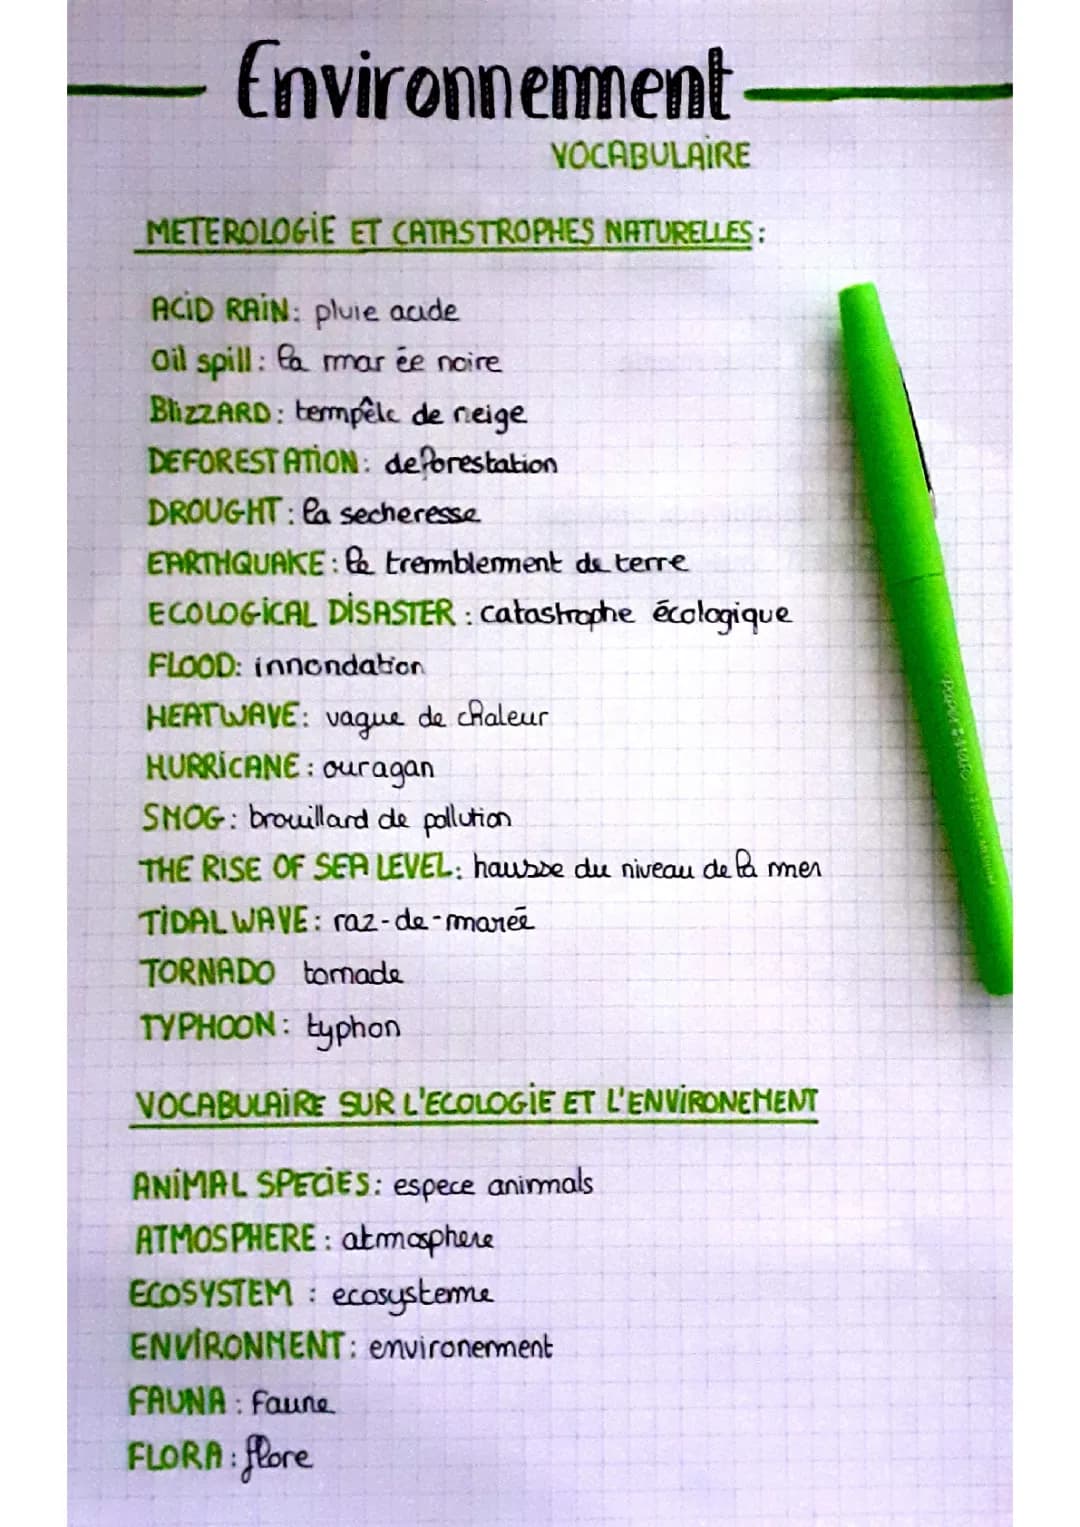 Environnement
VOCABULAIRE
METEROLOGIE ET CATASTROPHES NATURELLES:
ACID RAIN: pluie acide
Oil spill: la marée noire
BLIZZARD: tempête de neige
DEFORESTATION: deforestation
DROUGHT: la secheresse
EARTHQUAKE: le tremblement de terre
ECOLOGICAL DISASTER: catastrophe écologique
FLOOD: innondation
HEATWAVE: vague de chaleur
HURRICANE: ouragan
SMOG: brouillard de pollution
THE RISE OF SEA LEVEL: hausse du niveau de la mer
TIDAL WAVE: raz-de-marée
TORNADO tornade
TYPHOON: typhon
VOCABULAIRE SUR L'ECOLOGIE ET L'ENVIRONEMENT
ANIMAL SPECIES: espece animals
ATMOSPHERE: atmosphere
ECOSYSTEM: ecosysteme
ENVIRONMENT: environement
FAUNA: Faune
FLORA: flore